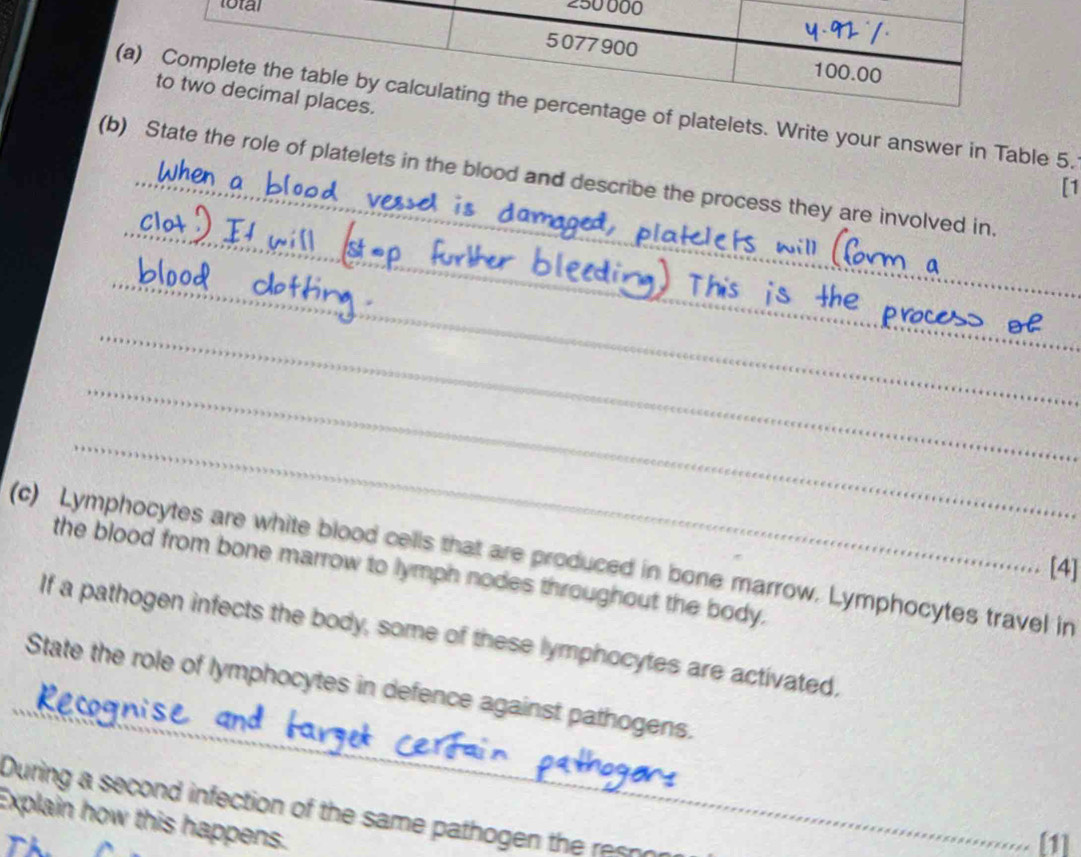 total 250 000 4.92 %
5 077 900 100.00
(a) Complete the table by calculating the percentage of platelets. Write your answer in Table 5.
to two decimal places.
[1
(b) State the role of platelets in the blood and describe the process they are involved in.
When a blood vessel is damaged, platelets will (form a
clot.) It will (stop further bleeding) This is the process of
blood clotting.
[4]
(c) Lymphocytes are white blood cells that are produced in bone marrow. Lymphocytes travel in
the blood from bone marrow to lymph nodes throughout the body.
If a pathogen infects the body, some of these lymphocytes are activated.
State the role of lymphocytes in defence against pathogens.
Recognise and target certain pathogens
[1]
During a second infection of the same pathogen the
Explain how this happens.